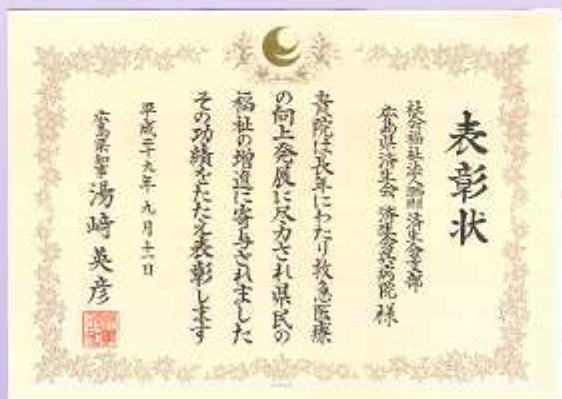 表彰状
社会福祉法人恩賜財団済生会支部
広島県済生会 済生会呉病院 様
貴院は長年にわたり救急医療
の向上発展に尽力され県民の
福祉の増進に寄与されました
その功績をたたえ表彰します
平成二十九年 九月十一日
広島県知事 湯﨑 英彦